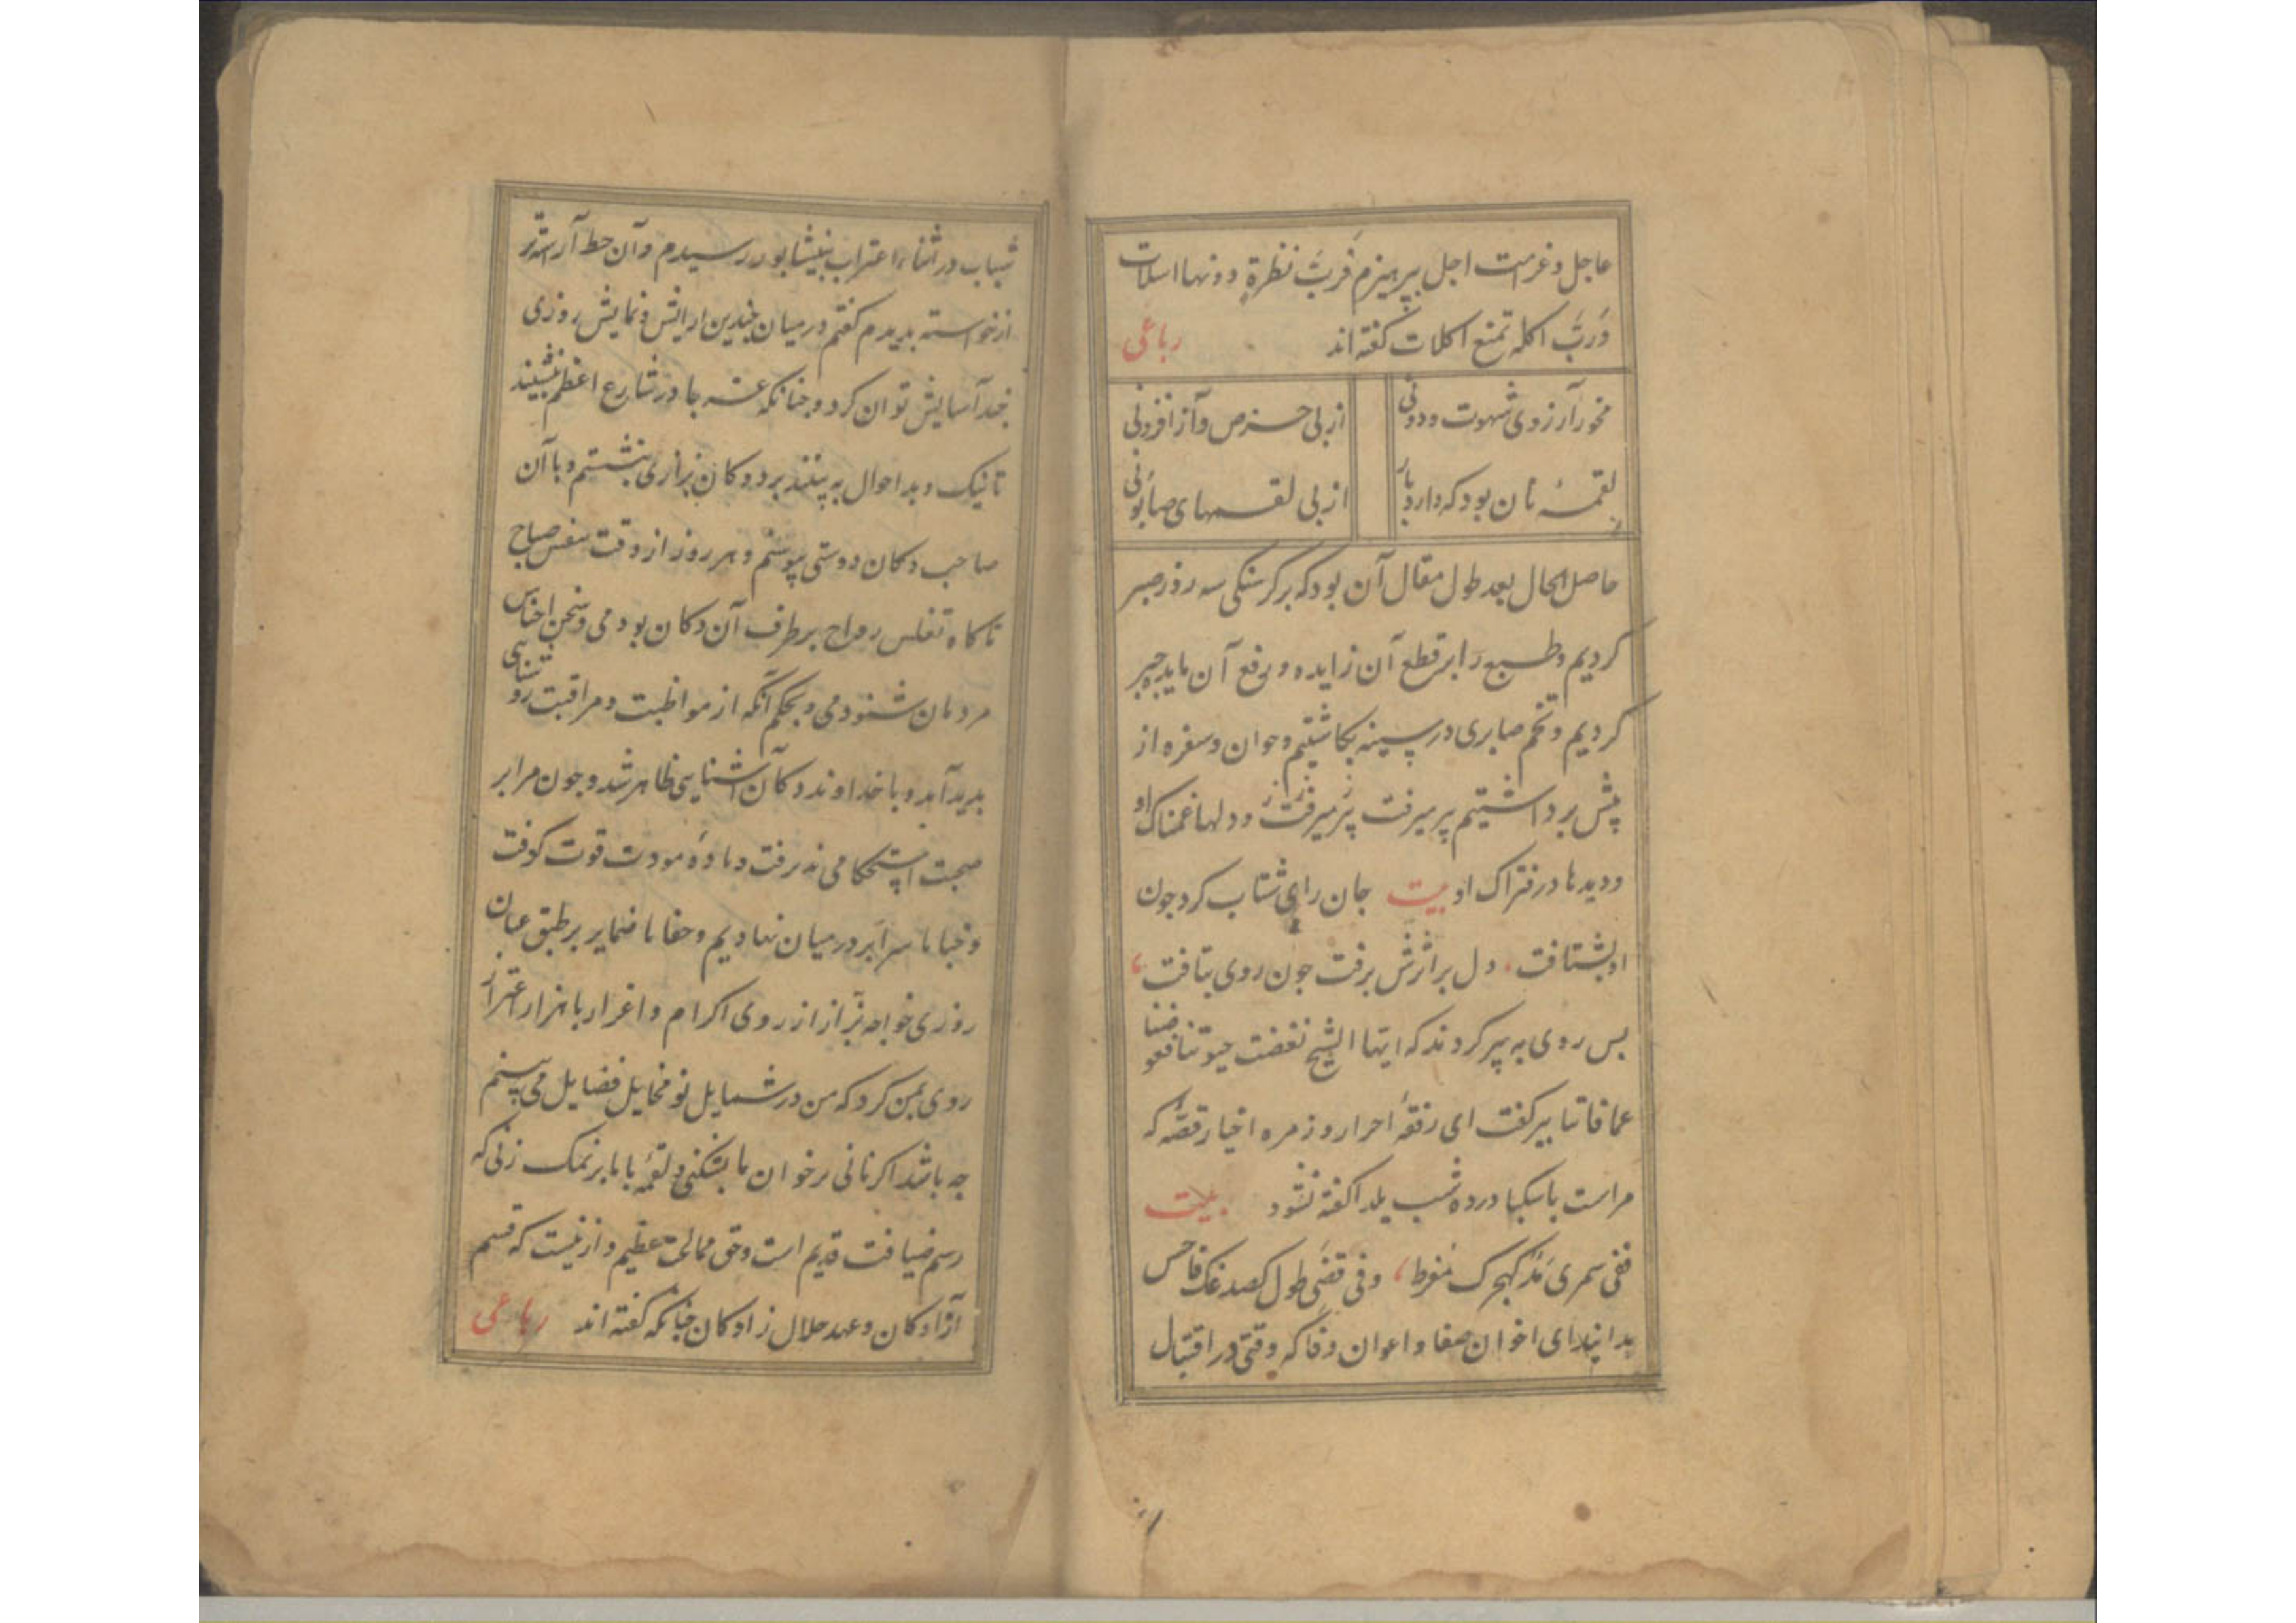 عاجل و غرامت اجل بپرهیزم فربّ نظرة دونها اسلات
وَربّ اکله تمنع اکلات کفته‌اند رباعی
مخور آرزوی شهوت و دونی از پی حرص و آز افزونی
لقمهٔ نان بود که دارد باز از پی لقمهای صابونی
حاصل الحال بعد طول مقال آن بود که بر کرسنکی سه روز صبر
کردیم و طبع را بر قطع آن زایده و رفع آن مایده جبر
کردیم و تخم صابری در سینه بکاشتیم و خوان و سفره از
پیش برداشتیم پیر میرفت و دلها غمناک او
و دیدها در فتراک او بیت جان رای شتاب کرد جون
او بشتافت دل بر اثرش برفت جون روی بتافت
بس روی به پیر کردند که ایها الشیخ نغضت حیوتنا فعوضنا
عما فاتنا پیر کفت ای رفقهٔ احرار و زمره اخیار قصّه که
مراست با سکبا در ده شب یلدا کفته نشود بیت
ففی سمری مدّ کهجرک مفرط وفی قصتی طول کصدغک فاحس
بدانید ای اخوان صفا و اعوان وفا که وقتی در اقتبال
شباب در اثناء اغتراب بنیشابور رسیدم و آن خط آراسته‌تر
از خواسته بدیدم کفتم در میان جندین ارایش و نمایش روزی
جند آسایش توان کرد و جنانکه غربا در شارع اعظم نشینند
تا نیک و بد احوال به بینند بر دوکان بزازی بنشستم و با آن
صاحب دکان دوستی پیوستم و هر روز از وقت تنفس صباح
تا کاه تغلس رواح بر طرف آن دکان بودمی و سخن اجناس
مردمان شنودمی و بحکم آنکه از مواظبت و مراقبت روشناسی
بدید آمد و با خداوند دکان آشنایی ظاهر شد و جون مرایر
صحبت استحکامی پذیرفت و مادهٔ مودت قوت کرفت
و خبایا سرایر در میان نهادیم و خفایا ضمایر بر طبق عیان
روزی خواجه بزّاز از روی اکرام و اعزاز با هزار اهتزاز
روی بمن کرد که من در شمایل تو مخایل فضایل می بینم
جه باشد اکر نانی بر خوان ما بشکنی و لقمهٔ با ما بر نمک زنی که
رسم ضیافت قدیم است و حق ممالحت عظیم و ازینست که قسم
آزادکان و عهد حلال زادکان جنانکه کفته‌اند رباعی